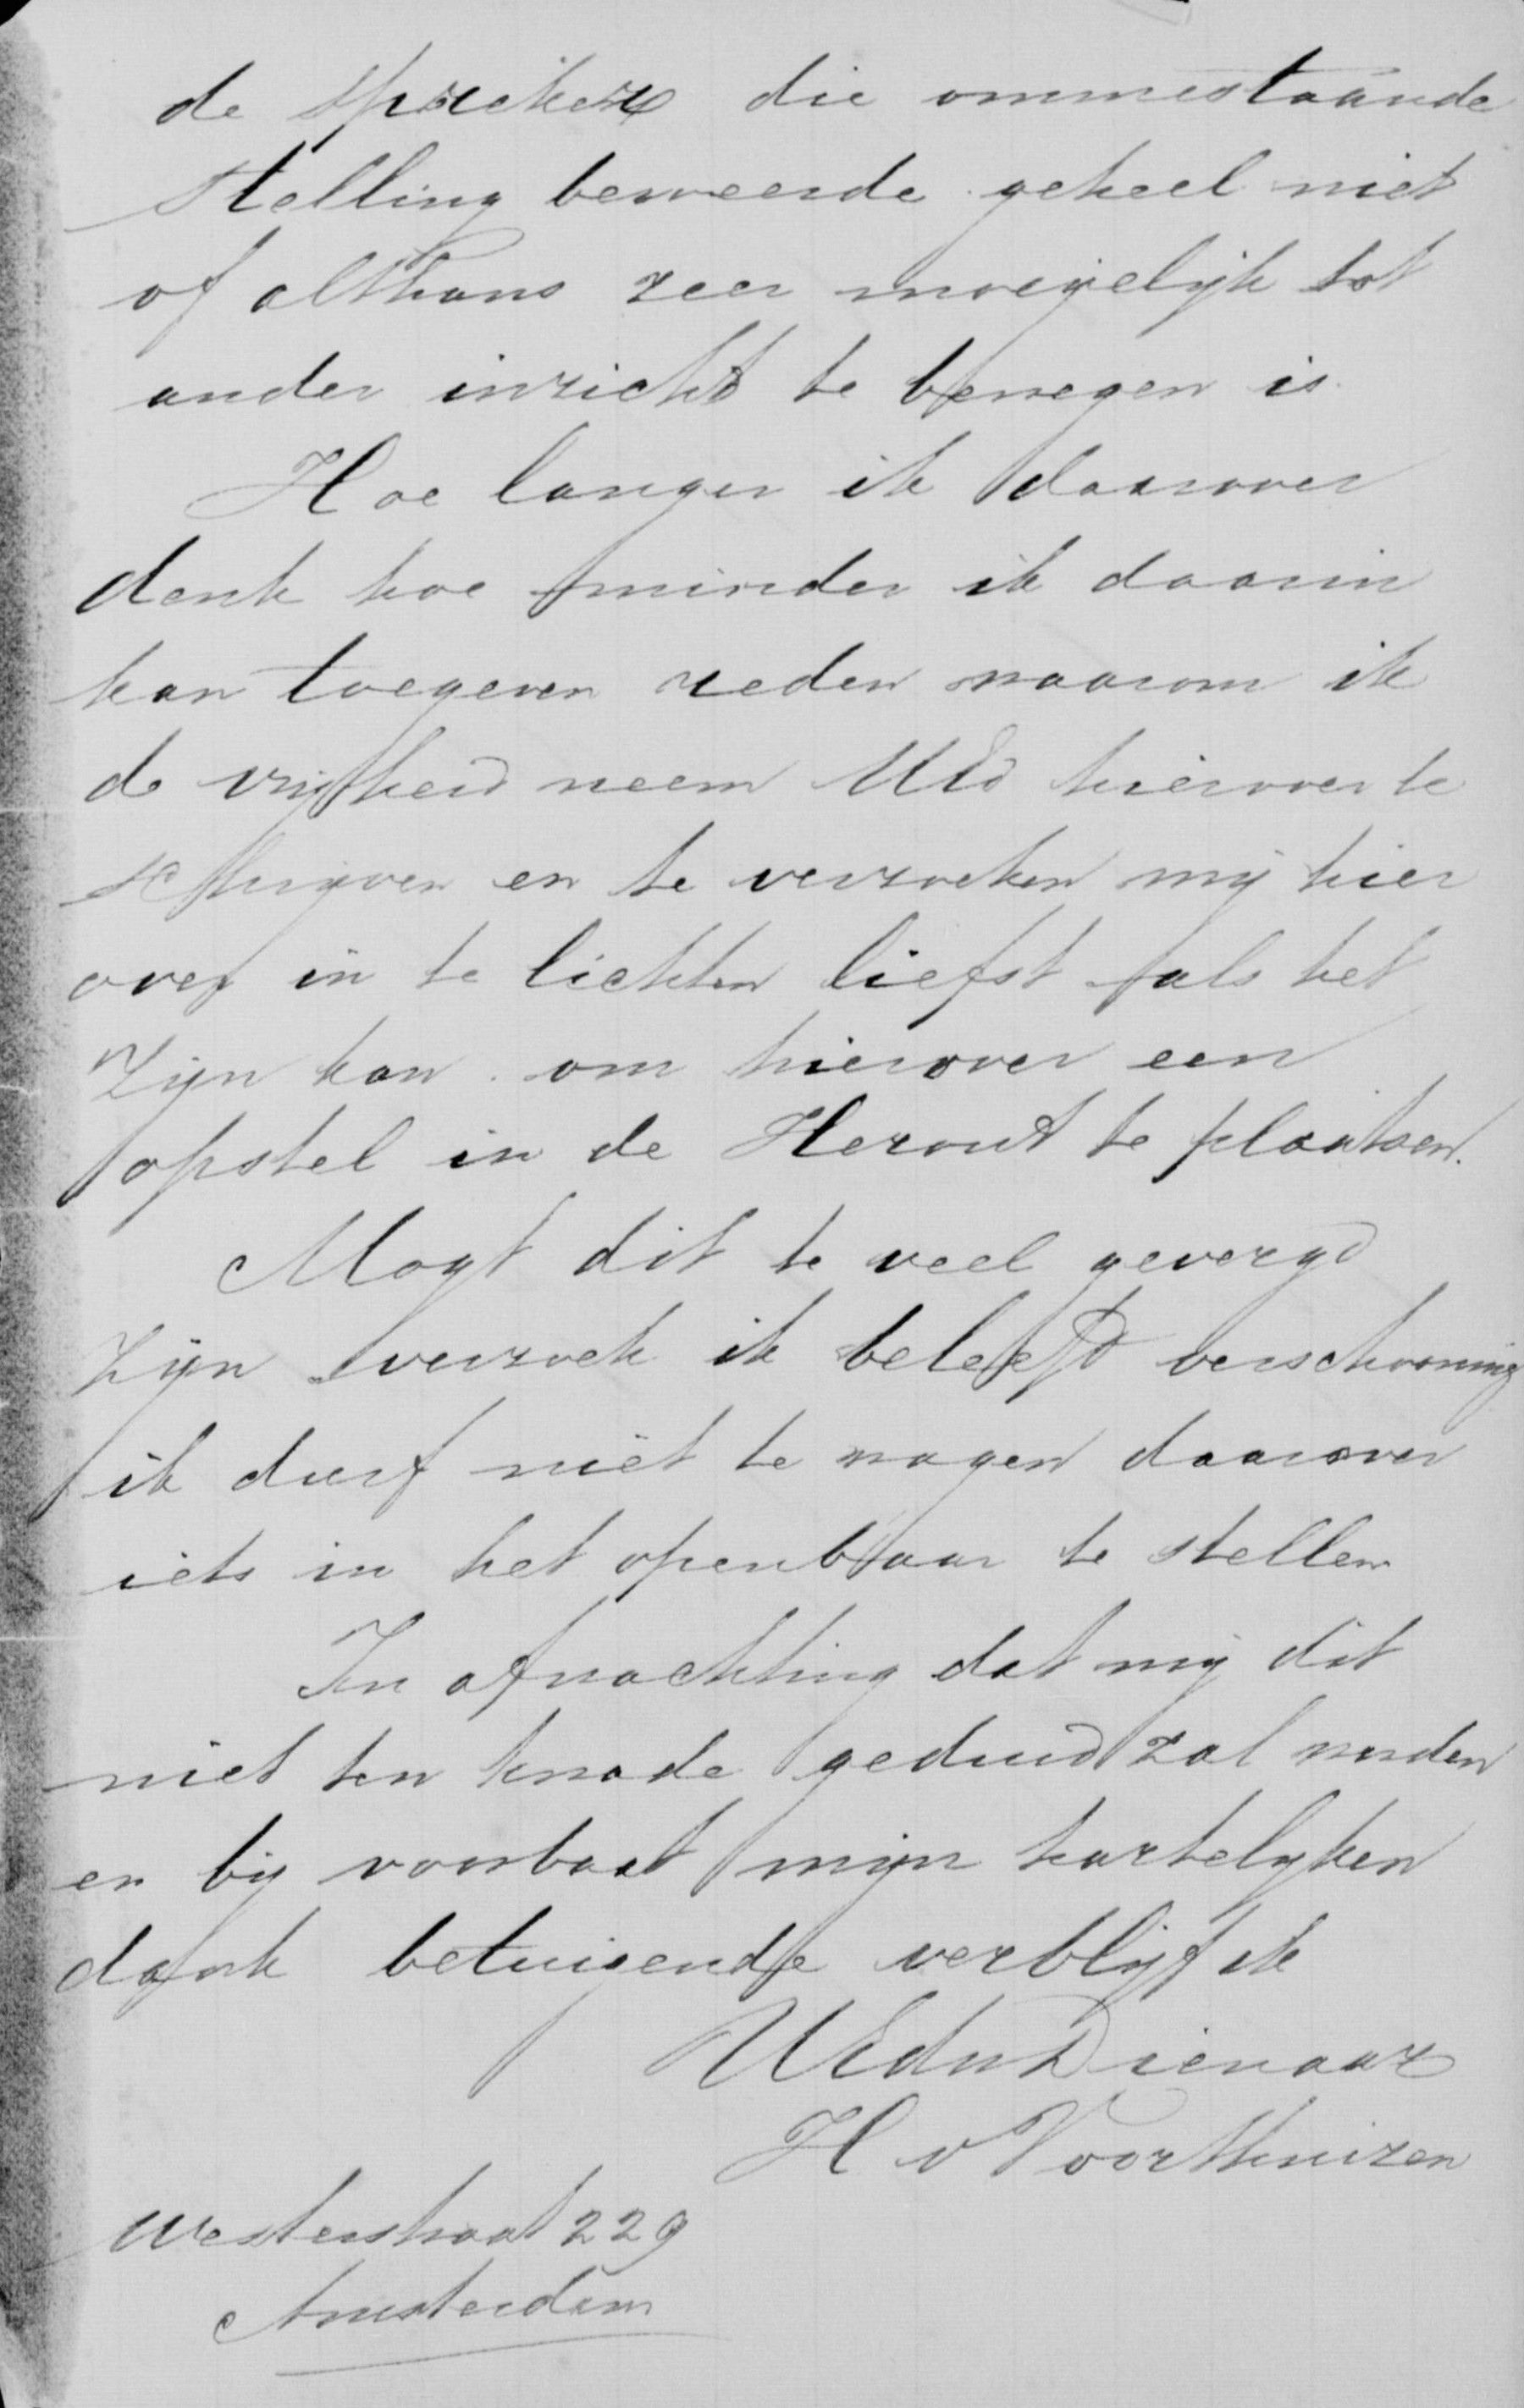 de spreker die ommestaande
stelling beweerde geheel niet
of althans zeer moeijelijk tot
ander inzicht te bewegen is
Hoe langer ik daarover
denk hoe minder ik daarin
kan toegeven reden waarom ik
de vrijheid neem UEd hierover te
schrijven en te verzoeken mij hier
over in te lichten liefst als het
zijn kan om hierover een
opstel in de Heraut te plaatsen.
Mogt dit te veel gevergd
zijn verzoek ik beleefd verschooning
ik durf niet te wagen daarover
iets in het openbaar te stellen
In afwachting dat mij dit
niet ten kwade geduid zal worden
en bij voorbaat mijn hartelijken
dank betuigende verblijf ik
UEdw Dienaar
H v Voorthuizen
Westerstraat 229
Amsterdam